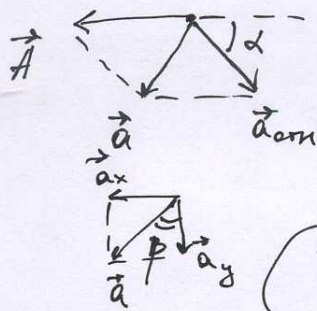 α
A⃗
a⃗
a⃗отн
a⃗x
β
a⃗y
a⃗